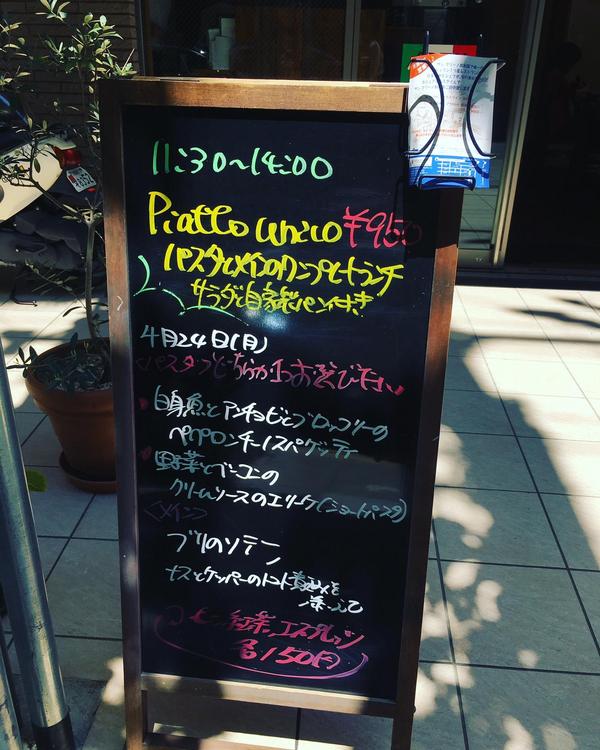 11:30〜14:00
Piatto unico ¥950
パスタとメインのワンプレートランチ
サラダと自家製パン付き
4月24日(月)
<パスタ>どちらか1つお選び下さい
白身魚とアンチョビとブロッコリーの
ペペロンチーノスパゲッティ
野菜とベーコンの
クリームソースのエリーケ(ショートパスタ)
<メイン>
ブリのソテー
ナスとケッパーのトマト煮込みを
添えて
紅茶、エスプレッソ
各150円